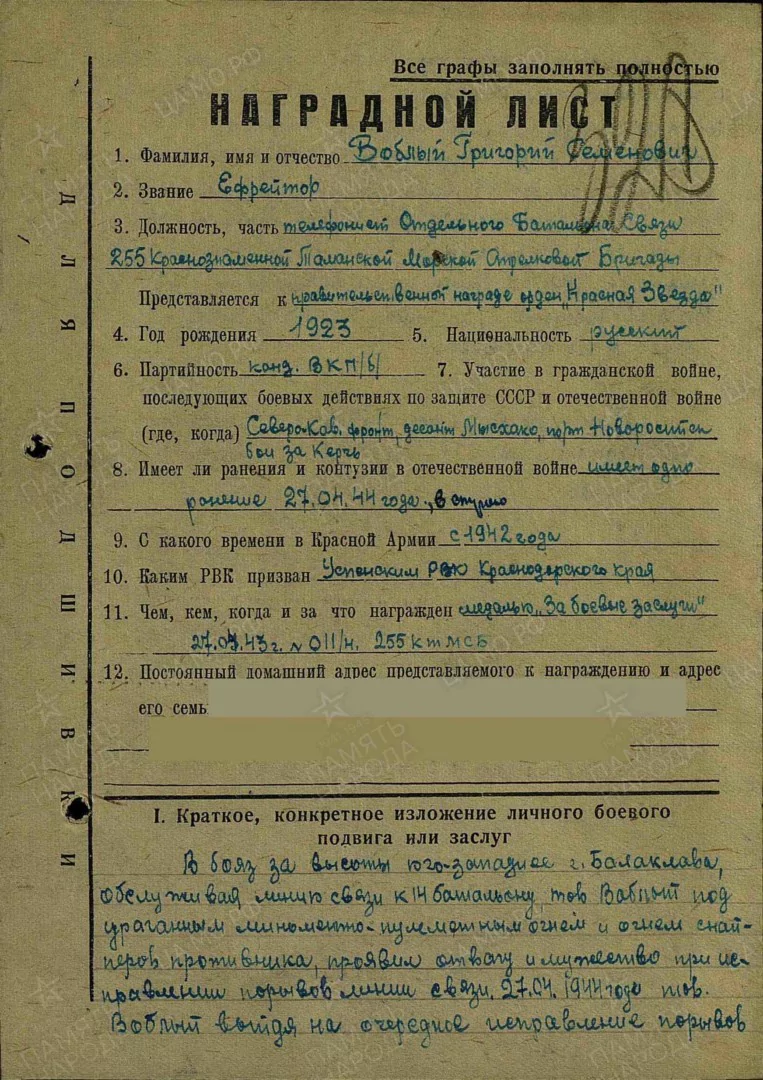 Все графы заполнять полностью
НАГРАДНОЙ ЛИСТ
1. Фамилия, имя и отчество Воблый Григорий Семенович
2. Звание Ефрейтор
3. Должность, часть телефонист Отдельного Батальона Связи
255 Краснознаменной Таманской Морской Стрелковой Бригады
Представляется к правительственной награде орден „Красная Звезда"
4. Год рождения 1923 5. Национальность русский
6. Партийность канд. ВКП/б/ 7. Участие в гражданской войне,
последующих боевых действиях по защите СССР и отечественной войне
(где, когда) Северо-Кав. фронт, десант Мысхако, порт Новороссийск
бои за Керчь
8. Имеет ли ранения и контузии в отечественной войне имеет одно
ранение 27.04.44 года, в
9. С какого времени в Красной Армии с 1942 года
10. Каким РВК призван Успенским РВК Краснодарского края
11. Чем, кем, когда и за что награжден медалью „За боевые заслуги"
43 г. № 011/н. 255 КТМСБ
12. Постоянный домашний адрес представляемого к награждению и адрес
его семь
I. Краткое, конкретное изложение личного боевого
подвига или заслуг
В боях за высоты юго-западнее г. Балаклава,
обслуживая линию связи к 14 батальону, тов. Воблый под
ураганным минометно-пулеметным огнем и огнем снай-
перов противника, проявил отвагу и мужество при ис-
правлении порывов линии связи. 27.04.1944 года тов.
Воблый выйдя на очередное исправление порывов
ДЛЯ ПОДШИВКИ
ЦАМО.РФ
ПАМЯТЬ НАРОДА